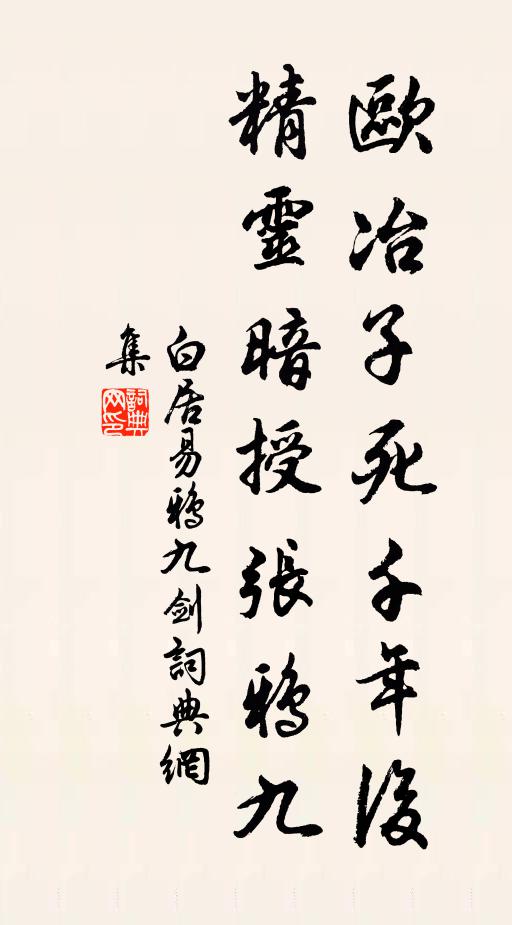 歐冶子死千年後
精靈暗授張鴉九
白居易鴉九劍詞典網
集
詞典
网印